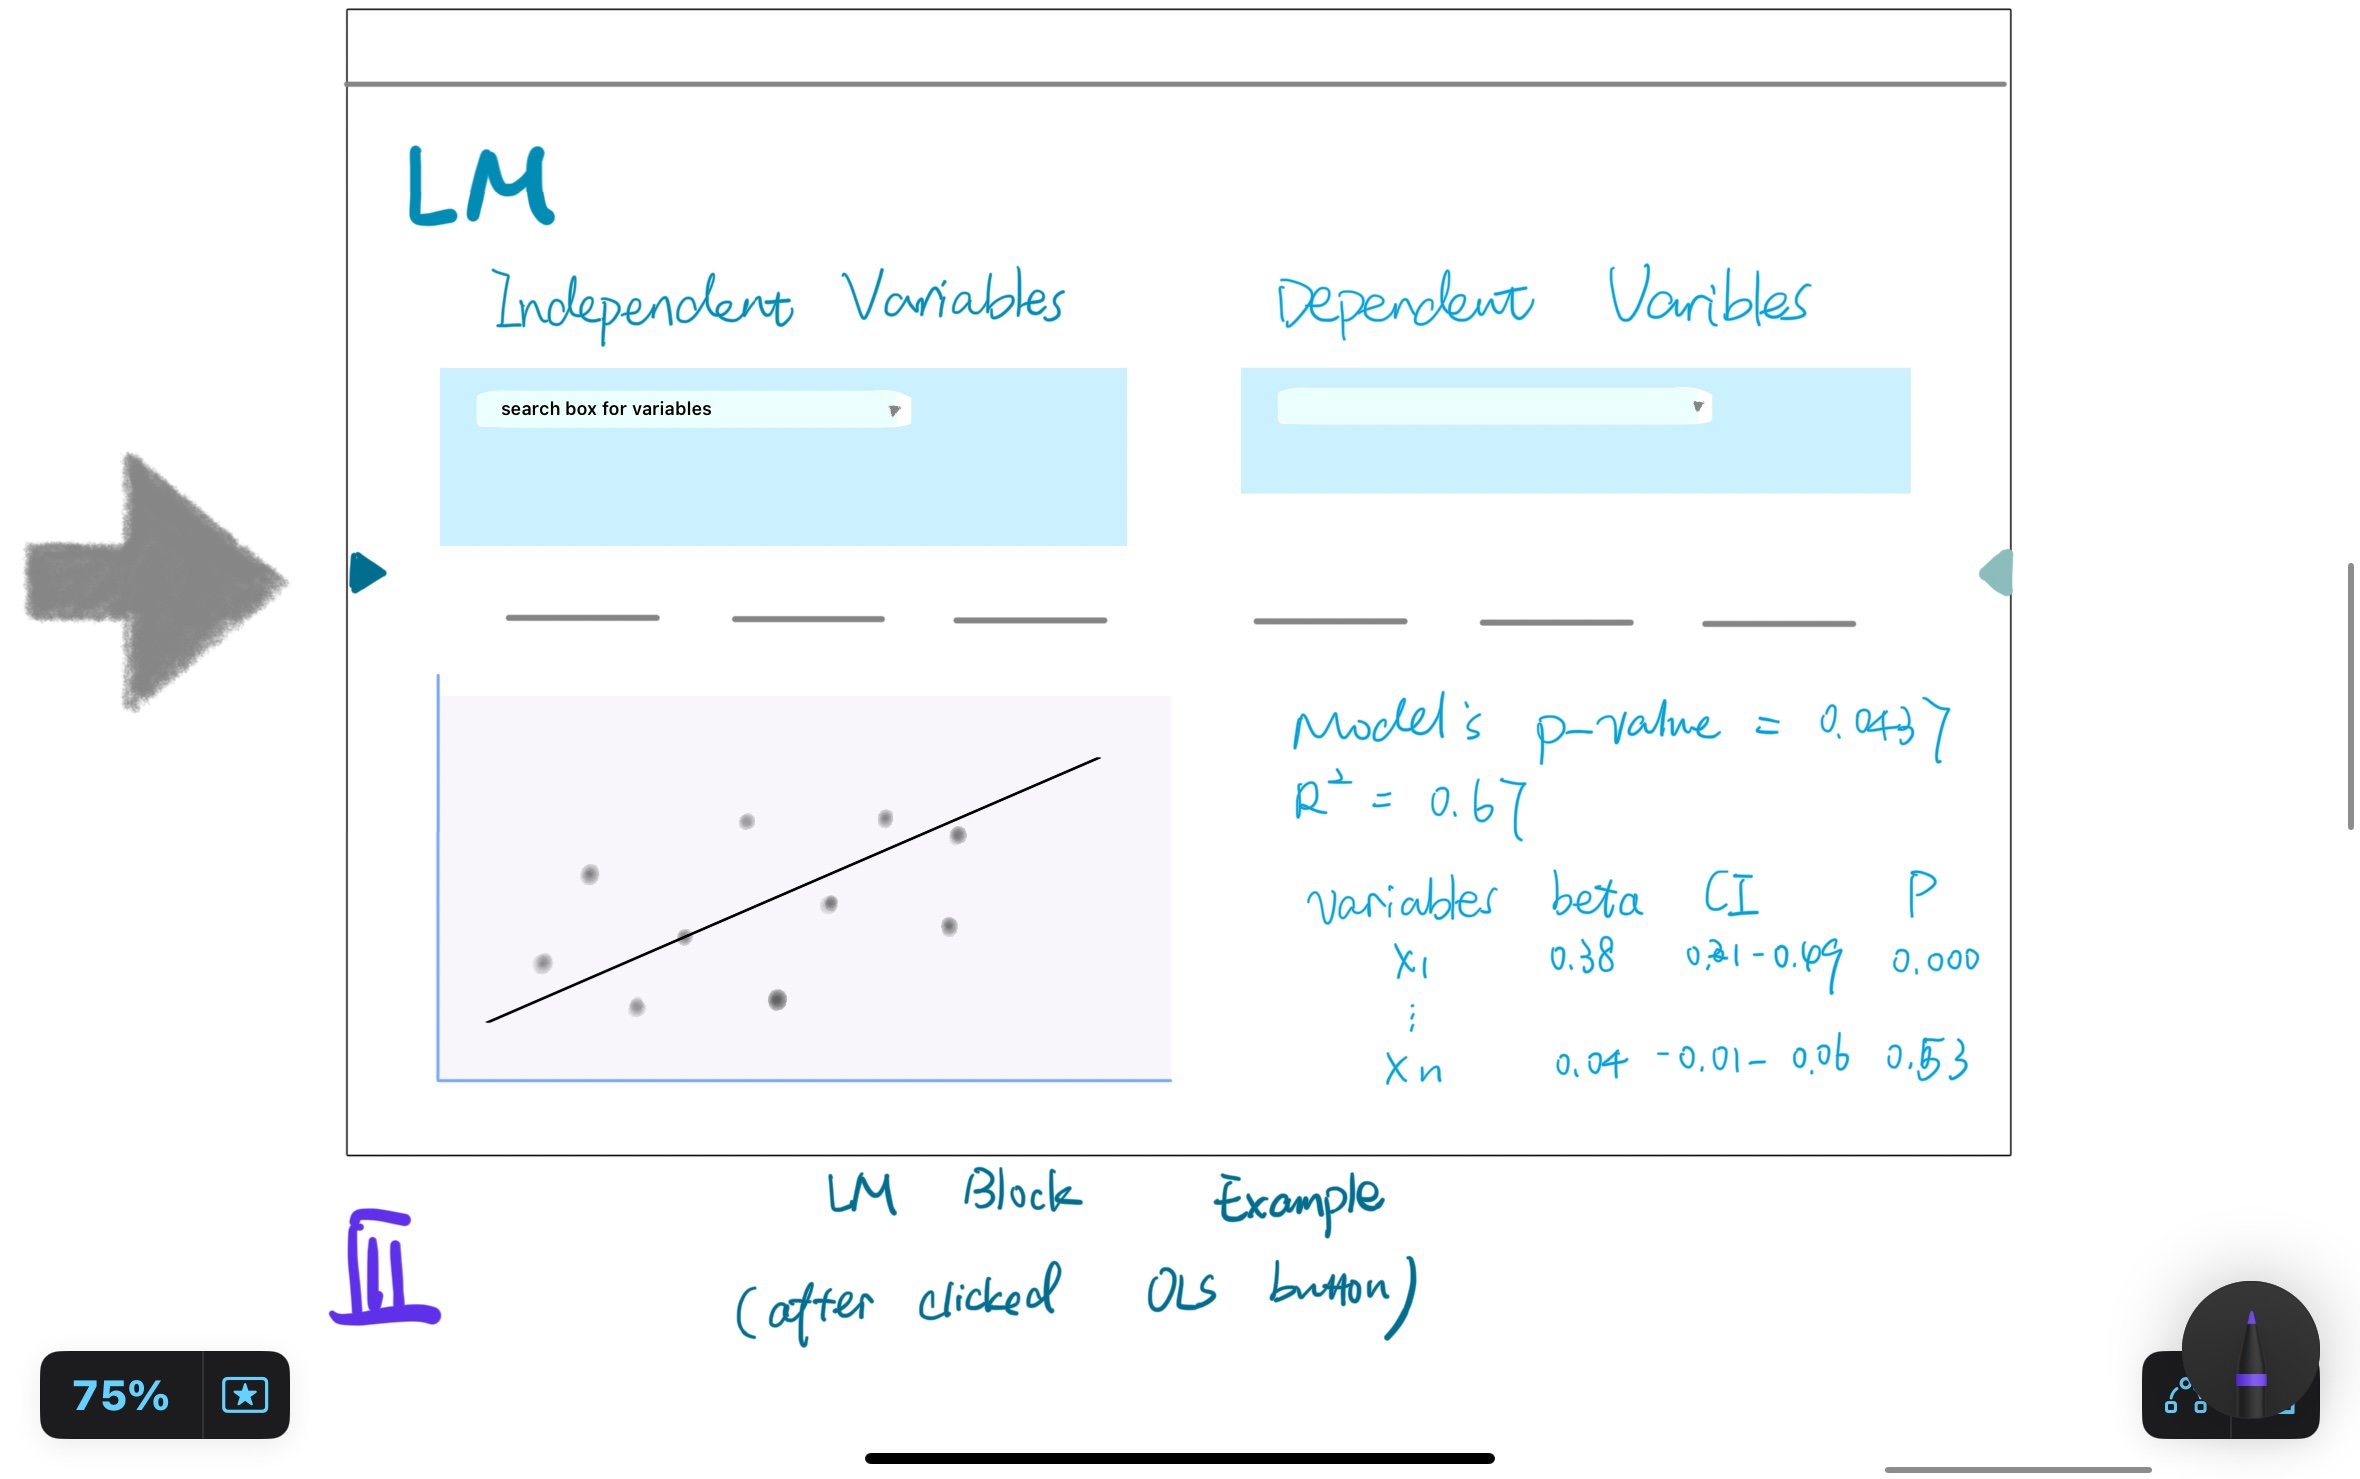 LM
Independent Variables
Dependent Varibles
search box for variables
Model's p-value = 0.0437
R² = 0.67
variables beta CI P
x1 0.38 0.21-0.49 0.000
⋮
xn 0.04 -0.01- 0.06 0.53
LM Block Example
(after clicked OLS button)
II
75%